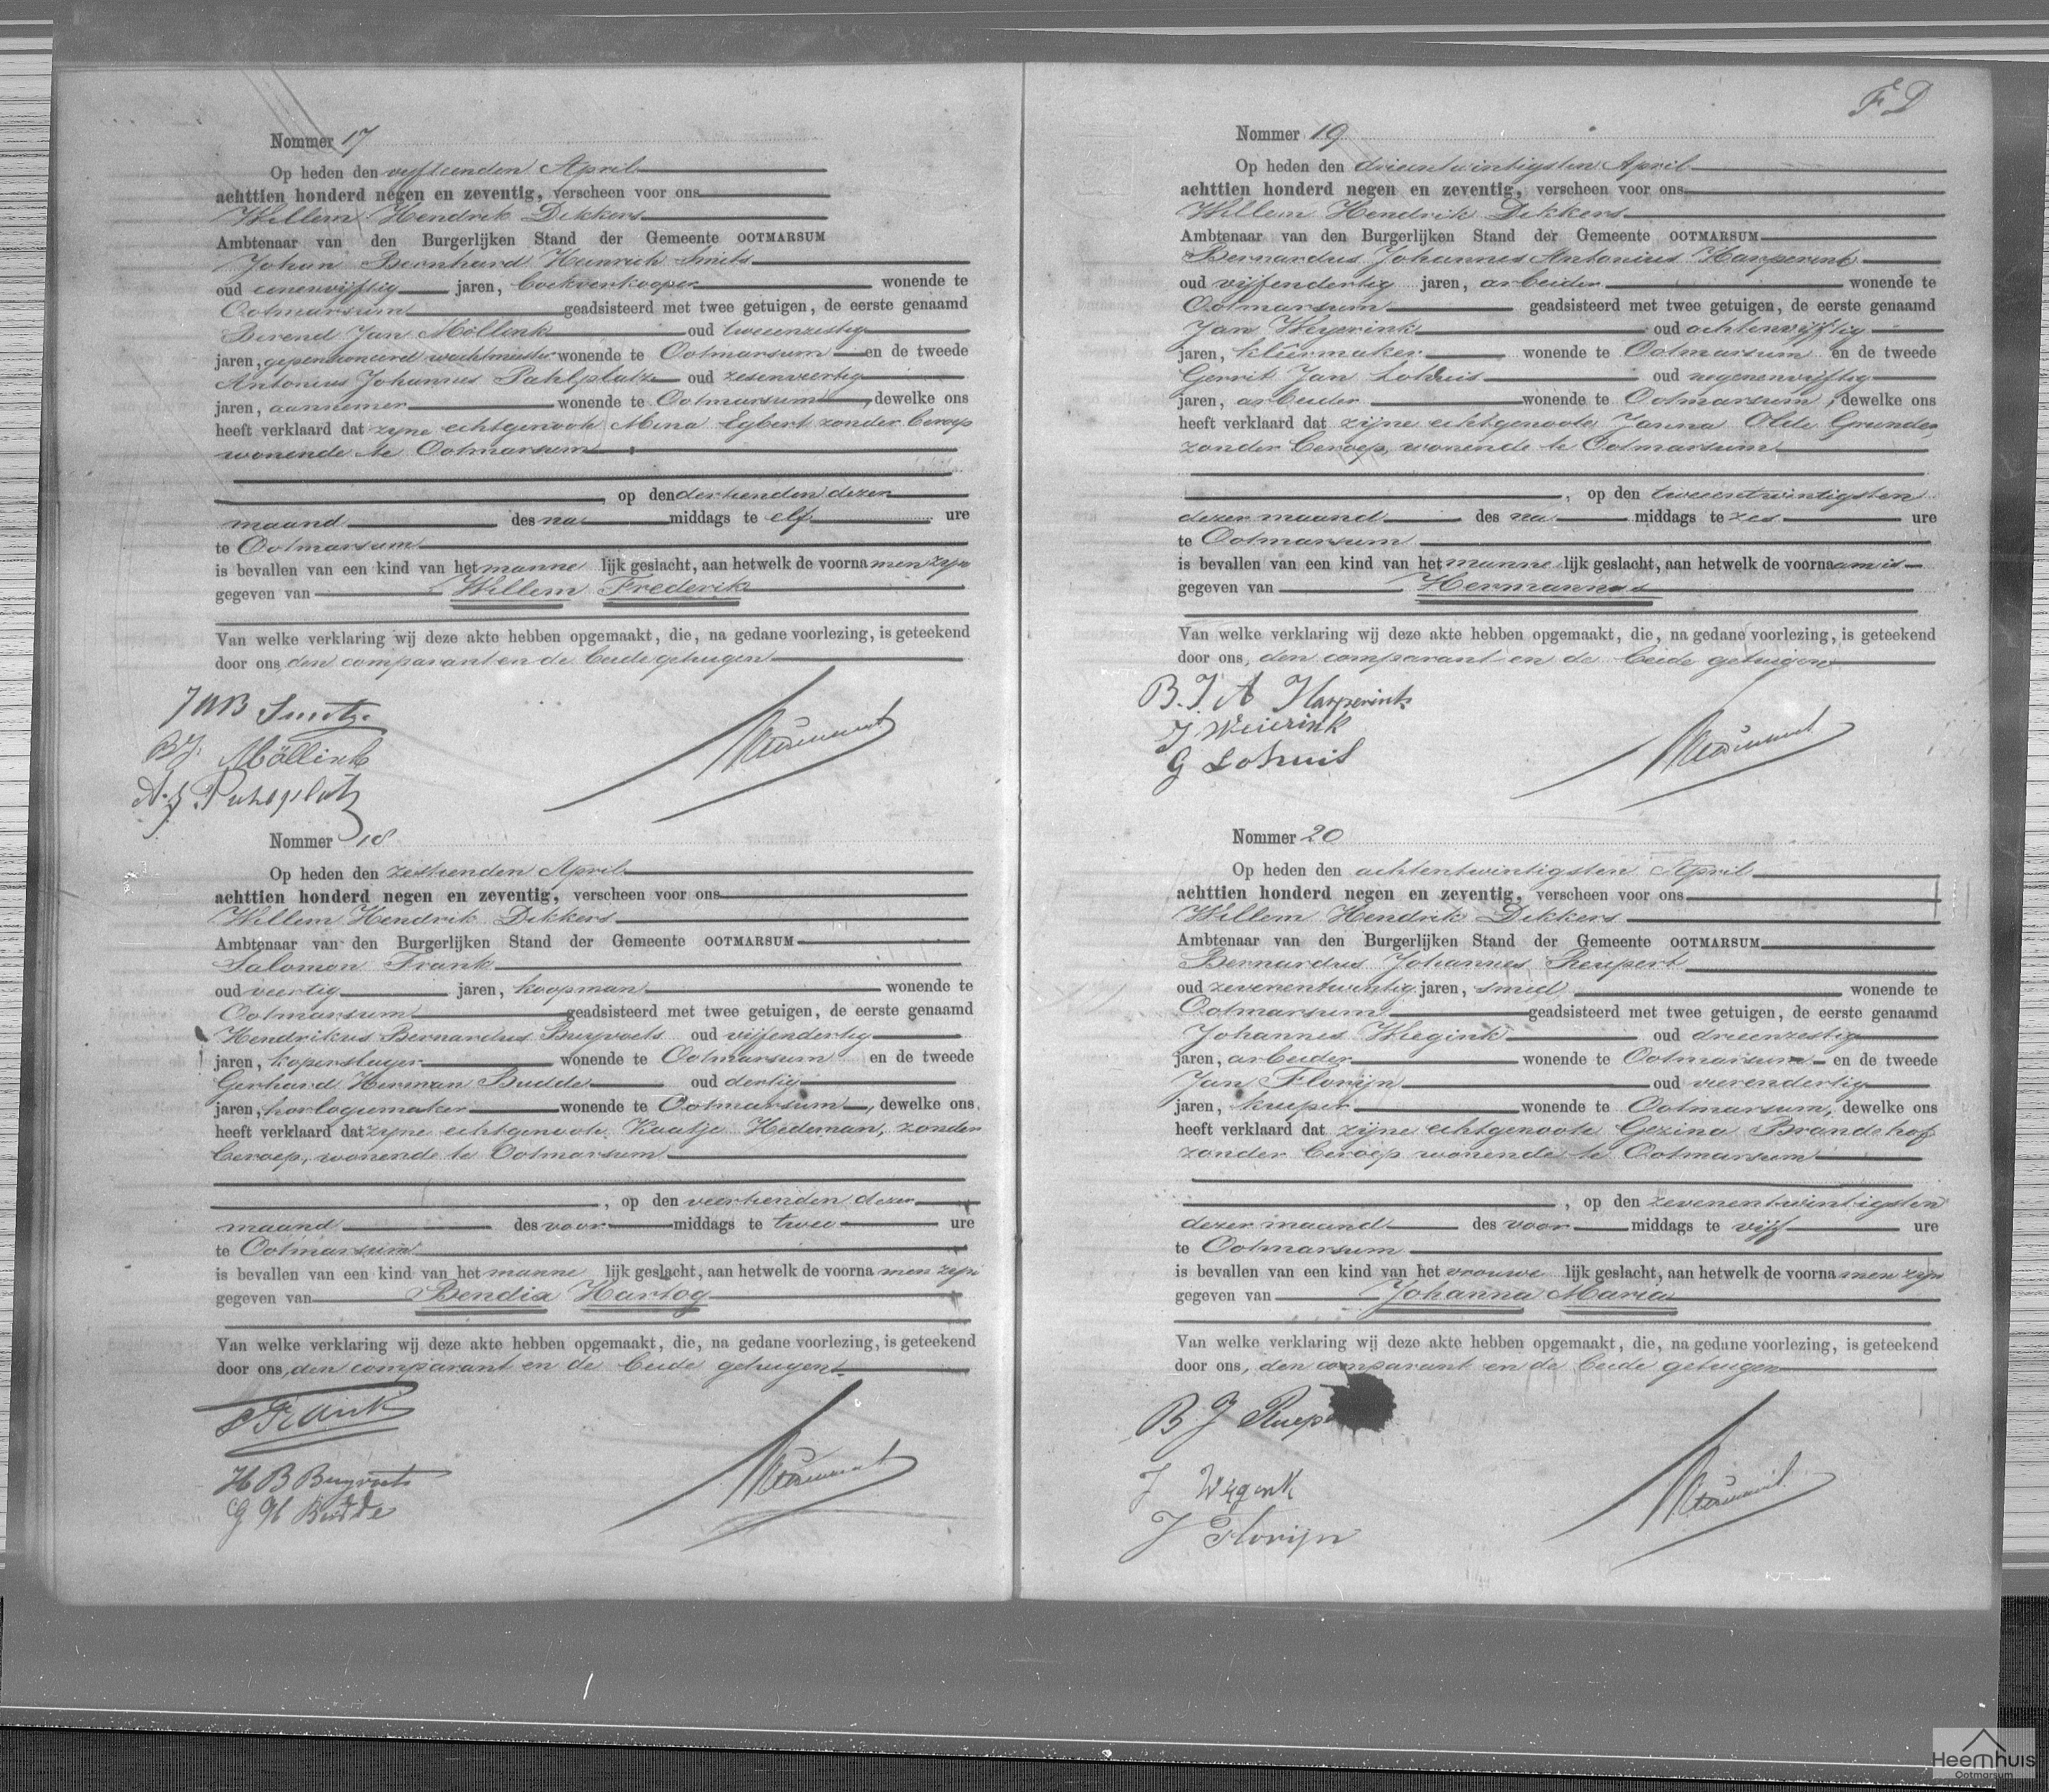 Nommer 17
Op heden den vijftienden April
achttien honderd negen en zeventig, verscheen voor ons
Willem Hendrik Dikkers
Ambtenaar van den Burgerlijken Stand der Gemeente OOTMARSUM
Johan Bernhard Heinrich Smits
oud eenenvijftig jaren, boekverkooper wonende te
Ootmarsum geadsisteerd met twee getuigen, de eerste genaamd
Berend Jan Möllink oud tweeenzestig
jaren, gepensioneerd wachtmeester wonende te Ootmarsum en de tweede
Antonius Johannes Pahlplatz oud zesenveertig
jaren, aannemer wonende te Ootmarsum, dewelke ons
heeft verklaard dat zijne echtgenoote Mina Egbert zonder beroep
wonende te Ootmarsum
, op den dertienden dezer
maand des na middags te elf ure
te Ootmarsum
is bevallen van een kind van het manne lijk geslacht, aan hetwelk de voornamen zijn
gegeven van Willem Frederik
Van welke verklaring wij deze akte hebben opgemaakt, die, na gedane voorlezing, is geteekend
door ons, den comparant en de beide getuigen
Smits
BJ. Möllink
A. J. Pahlplatz
Nommer 18
Op heden den zestienden April
achttien honderd negen en zeventig, verscheen voor ons
Willem Hendrik Dikkers
Ambtenaar van den Burgerlijken Stand der Gemeente OOTMARSUM
Salomon Frank
oud veertig jaren, koopman wonende te
Ootmarsum geadsisteerd met twee getuigen, de eerste genaamd
Hendrikus Bernardus Buijvoets oud vijfendertig
jaren, koperslager wonende te Ootmarsum en de tweede
Gerhard Herman Budde oud dertig
jaren, horlogiemaker wonende te Ootmarsum, dewelke ons
heeft verklaard dat zijne echtgenoote Kaatje Hedeman, zonder
beroep, wonende te Ootmarsum
, op den veertienden dezer
maand des voor middags te twee ure
te Ootmarsum
is bevallen van een kind van het manne lijk geslacht, aan hetwelk de voorna men zijn
gegeven van Bendix Hartog
Van welke verklaring wij deze akte hebben opgemaakt, die, na gedane voorlezing, is geteekend
door ons, den comparant en de beide getuigen.
S Frank
H B Buijvoets
G H Budde
F D
Nommer 19
Op heden den drieentwintigsten April
achttien honderd negen en zeventig, verscheen voor ons
Willem Hendrik Dikkers
Ambtenaar van den Burgerlijken Stand der Gemeente OOTMARSUM
Bernardus Johannes Antonius Harperink
oud vijfendertig jaren, arbeider wonende te
Ootmarsum geadsisteerd met twee getuigen, de eerste genaamd
Jan Weijerink oud achtenvijftig
jaren, kleermaker wonende te Ootmarsum en de tweede
Gerrit Jan Lohuis oud negenenvijftig
jaren, arbeider wonende te Ootmarsum, dewelke ons
heeft verklaard dat zijne echtgenoote Janna Olde Grunde,
zonder beroep, wonende te Ootmarsum
, op den tweeentwintigsten
dezer maand des na middags te zes ure
te Ootmarsum
is bevallen van een kind van het manne lijk geslacht, aan hetwelk de voornaam is
gegeven van Hermannus
Van welke verklaring wij deze akte hebben opgemaakt, die, na gedane voorlezing, is geteekend
door ons, den comparant en de beide getuigen
B. J. A Harperink
J Weierink
G Lohuis
Nommer 20
Op heden den achtentwintigsten April
achttien honderd negen en zeventig, verscheen voor ons
Willem Hendrik Dikkers
Ambtenaar van den Burgerlijken Stand der Gemeente OOTMARSUM
Bernardus Johannes Reupert
oud zevenentwintig jaren, smid wonende te
Ootmarsum geadsisteerd met twee getuigen, de eerste genaamd
Johannes Wiegink oud drieenzestig
jaren, arbeider wonende te Ootmarsum en de tweede
Jan Florijn oud vierendertig
jaren, kuiper wonende te Ootmarsum, dewelke ons
heeft verklaard dat zijne echtgenoote Gezina Brandehof
zonder beroep wonende te Ootmarsum
, op den zevenentwintigsten
dezer maand des voor middags te vijf ure
te Ootmarsum
is bevallen van een kind van het vrouwe lijk geslacht, aan hetwelk de voorna men zijn
gegeven van Johanna Maria
Van welke verklaring wij deze akte hebben opgemaakt, die, na gedane voorlezing, is geteekend
door ons, den comparant en de beide getuigen
B J
J Wegink
J Florijn
Heemhuis
Ootmarsum